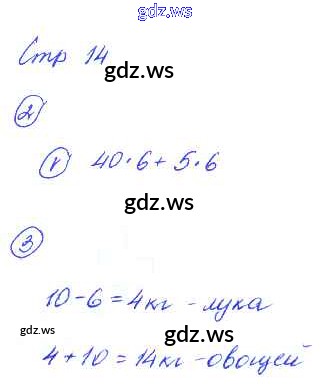 gdz.ws
Стр 14
gdz.ws
2
v 40·6+5·6
gdz.ws
3
10-6=4кг - лука
gdz.ws gdz.ws
4+10=14кг-овощей